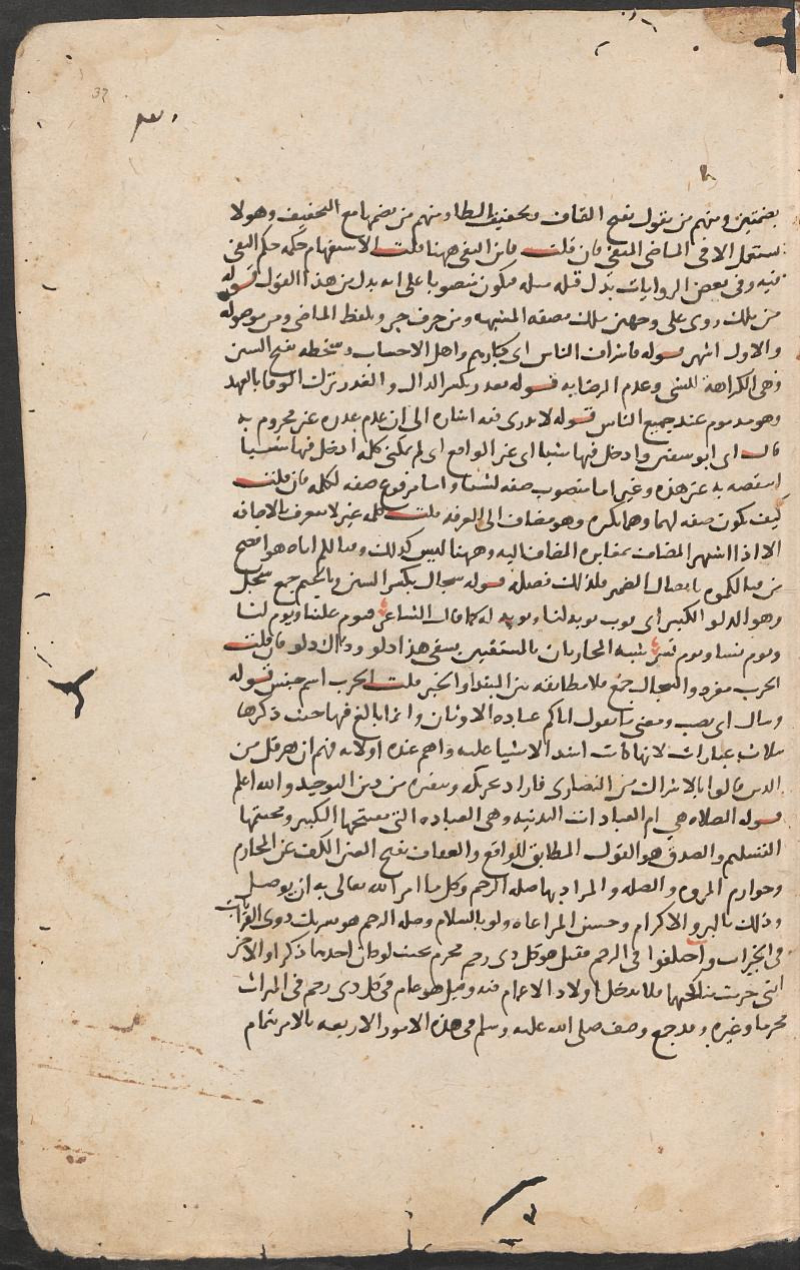 ٣٠
32
بضمتين ومنهم من يقول بفتح القاف وتخفيف الطاء ومنهم من يضمها مع التخفيف وهولا
يستعمل الا في الماضي المنفي فان قلت فاين النفي ههنا قلت الاستفهام حكمه حكم النفي
فيه وفي بعض الروايات بدل قبله مثله فيكون منصوبا على انه بدل من هذا القول قوله
من ملك روى على وجهين ملك صفة المشبهه ومن حرف جر وبلفظ الماضي ومن موصوله
والاول اشهر قوله فاشراف الناس اى كبارهم واهل الاحساب وسخطه بفتح السين
وهي الكراهة للشى وعدم الرضا به قوله يغدر بكسر الدال والغدر ترك الوفا بالعهد
وهو مذموم عند جميع الناس قوله لا ندرى فيه اشاره الى ان عدم غدره غير مجزوم به
قال اى ابو سفين وادخل فيها شيا اى غير الواقع اى لم يمكنى كلمه ادخل فيها شيا
انتقصه به غير هذه وغير اما منصوب صفه لشيا واما مرفوع صفه لكلمه فان قلت
كيف يكون صفه لهما وهما نكره وهو مضاف الى المعرفه قلت كلمه غير لا تتعرف بالاضافه
الا اذا اشتهر المضاف بمغايره المضاف اليه وههنا ليس كذلك وقتالكم اياه هو افصح
من قتالكموه باتصال الضمير فلذلك فصله قوله سجال بكسر السين وبالجيم جمع سجل
وهو الدلو الكبير اى نوب نوبه لنا ونوبه له كما قال الشاعر فيوم علينا ويوم لنا
ويوم نسا ويوم نسر شبه المحاربان بالمستقيين يستقي هذا دلو وذاك دلو فان قلت
الحرب مفرد والسجال جمع فلا مطابقه بين المبتدا والخبر قلت الحرب اسم جنس قوله
وينال اى يصب ومعنى ما يقول اباكم عباده الاوثان وانما بالغ فيها حيث ذكرها
بثلاث عبارات لانها كانت اشد الاشيا عليه واهم عنده اولانه فهم ان هرقل من
الذين قالوا بالاشراك من النصارى فاراد تحريكه وتنفيره من دين التوحيد والله اعلم
قوله الصلاه هي ام العبادات البدنيه وهي العباده التي مفتتحها التكبير ومختتمها
التسليم والصدق هو القول المطابق للواقع والعفاف بفتح العين الكف عن المحارم
وخوارم المروه والصله والمراد بها صله الرحم وكل ما امر الله تعالى به ان يوصل
وذلك بالبر والاكرام وحسن المراعاه ولو بالسلام وصله الرحم هو تشريك ذوى القرابات
في الخيرات واختلفوا في الرحم فقيل هو كل ذى رحم محرم بحيث لو كان احدهما ذكرا والاخر
انثى حرمت مناكحتهما فلا يدخل اولاد الاعمام فيه وقيل هو عام في كل ذى رحم في الميراث
محرما وغيره وقد جمع وصف صلى الله عليه وسلم في هذه الامور الاربعه بالامر بتمام